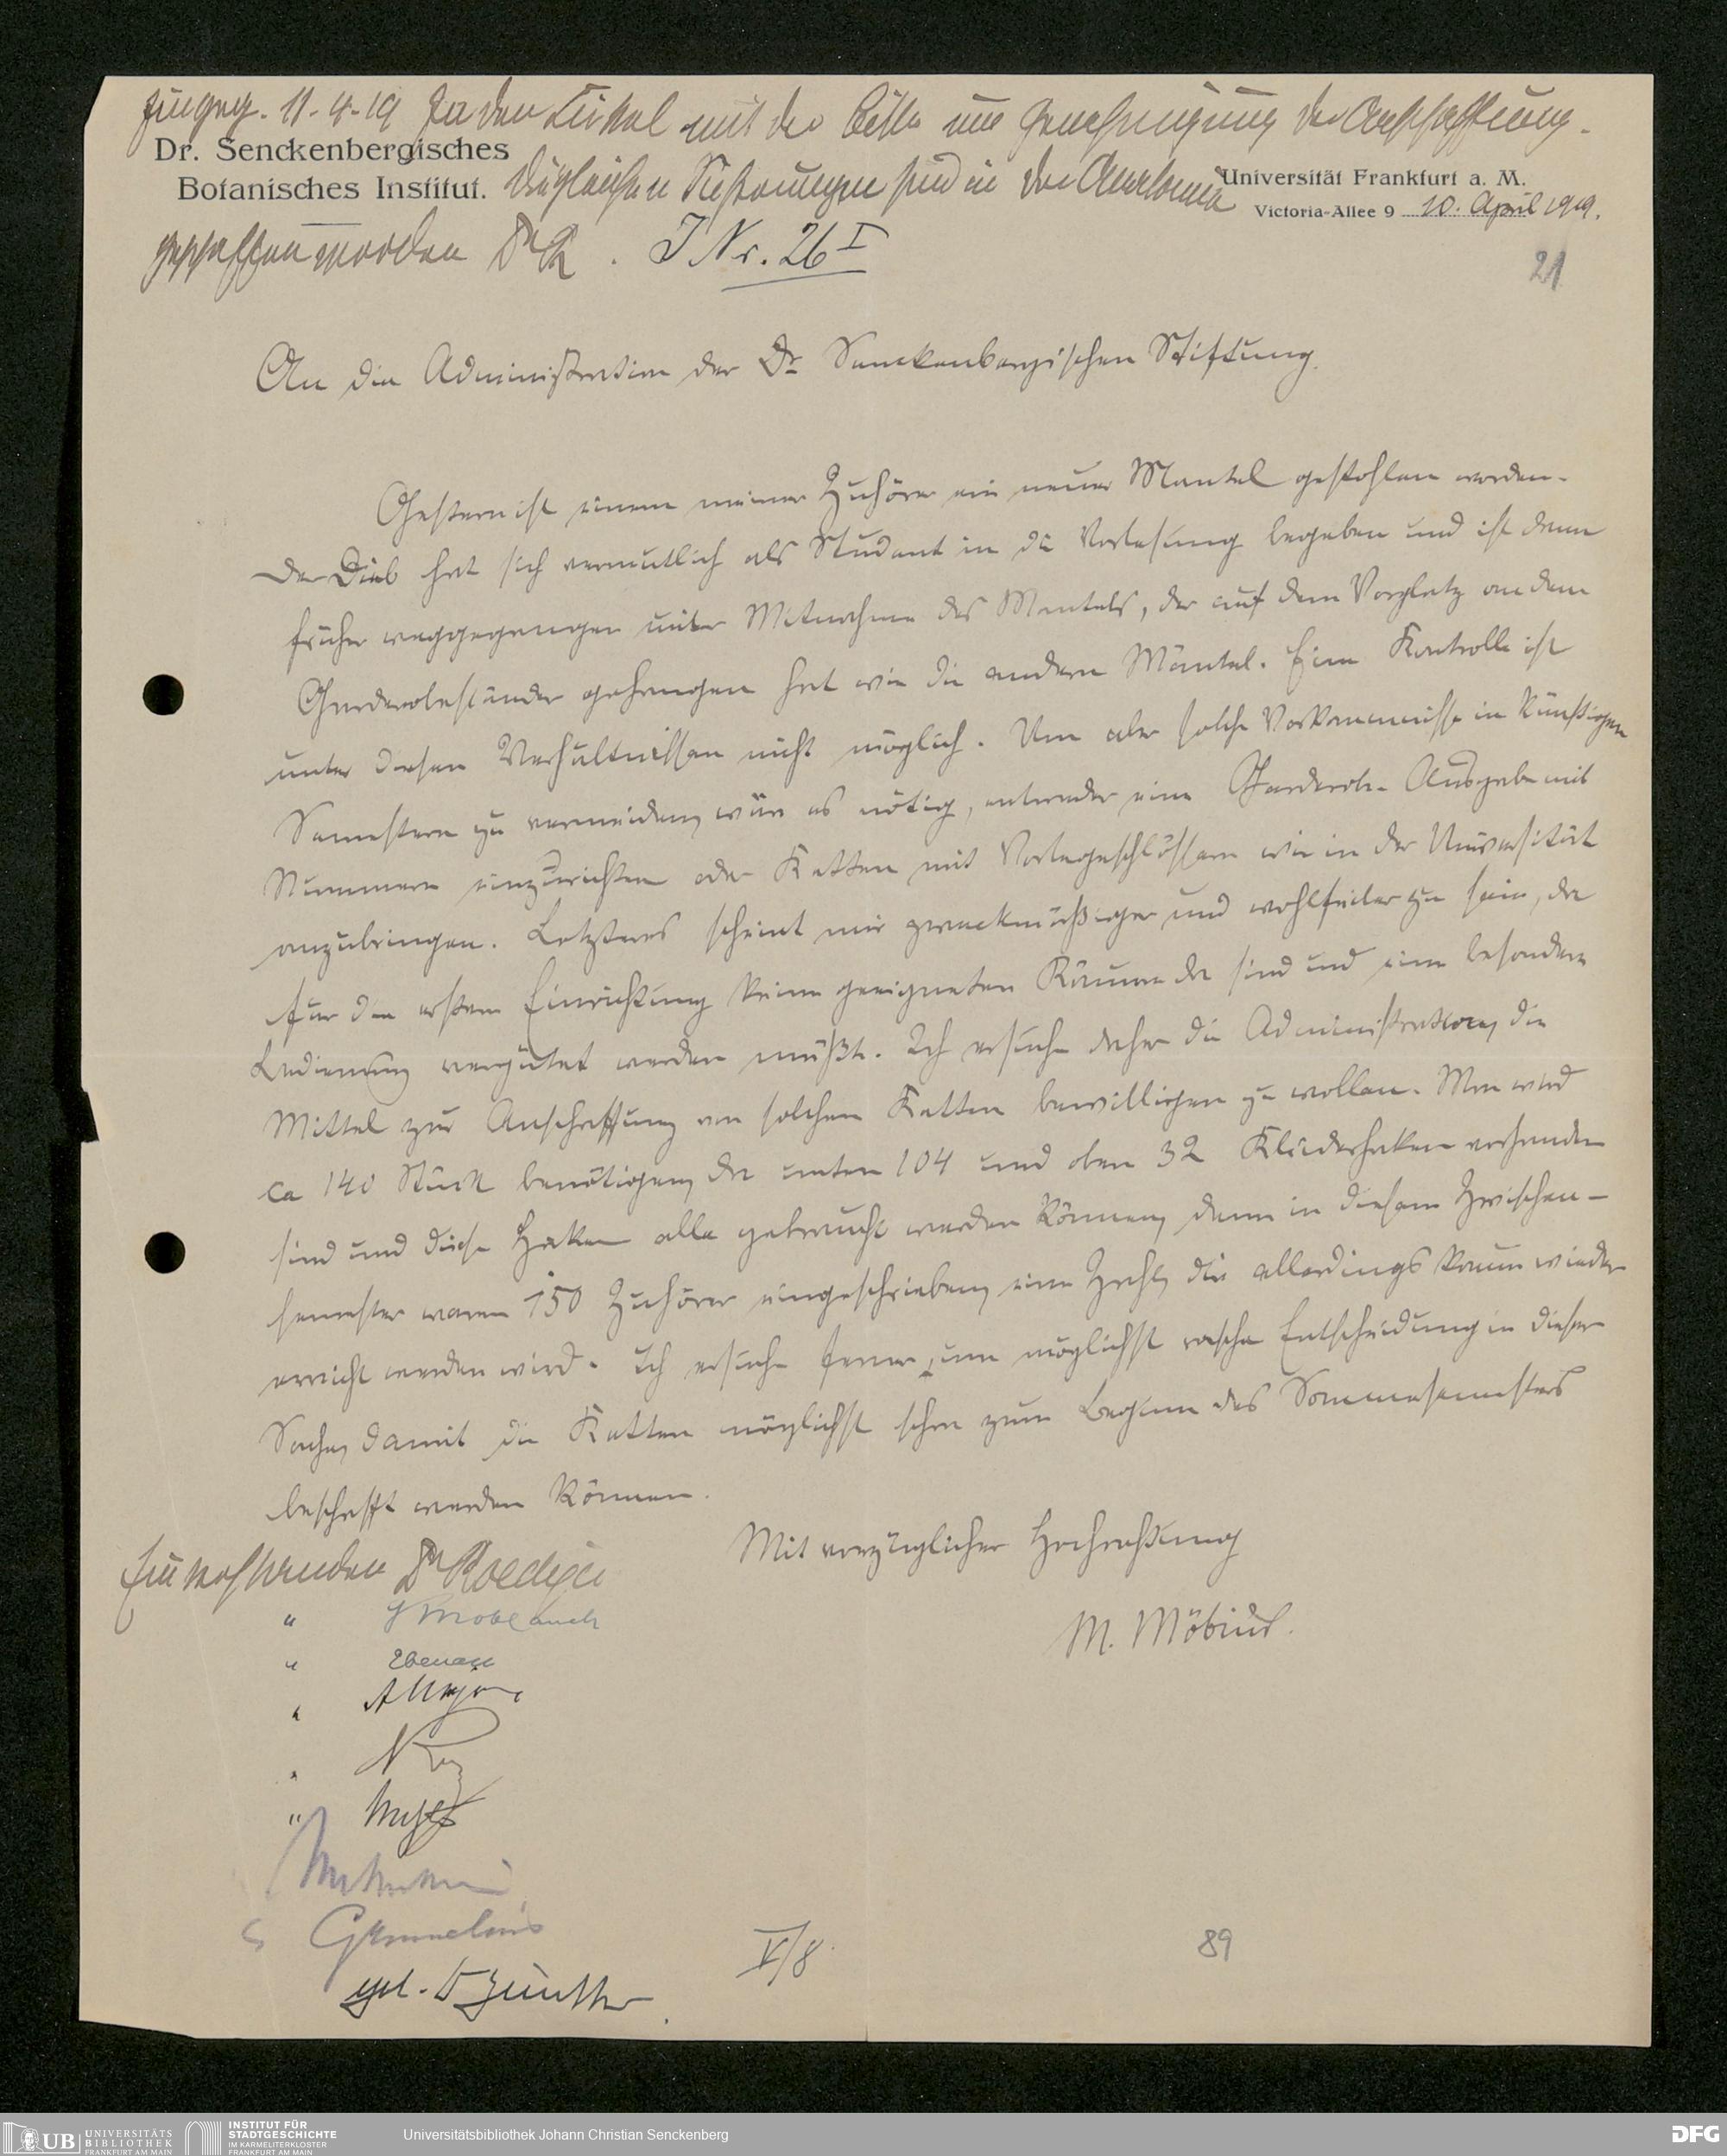 Eingeg. 11.4.19 In den Cirkel mit der Bitte um Genehmigung der Anschaffung.
Dr. Senckenbergisches
Botanisches Institut.
Dergleichen Sicherungen sind in der Anatomie
Universität Frankfurt a. M.
Victoria-Allee 9 10. April 1919.
geschaffen worden Dr R. J Nr. 26 I
21
An die Administration der Dr. Senckenbergischen Stiftung.
Gestern ist einem meiner Zuhörer ein neuer Mantel gestohlen worden.
Der Dieb hat sich vermutlich als Student in die Vorlesung begeben und ist dann
früher weggegangen unter Mitnahme des Mantels, der auf dem Vorplatz an dem
Garderobeständer gehangen hat wie die andern Mäntel. Eine Kontrolle ist
unter diesen Verhältnissen nicht möglich. Um aber solche Vorkommnisse in künftigen
Semestern zu vermeiden, wäre es nötig, entweder eine Garderobe-Ausgabe mit
Nummern einzurichten oder Ketten mit Vorlegeschlössern wie in der Universität
anzubringen. Letzteres scheint mir zweckmäßiger und wohlfeiler zu sein, da
für die erstere Einrichtung keine geeigneten Räume da sind und eine besondere
Bedienung vergütet werden müßte. Ich ersuche daher die Administration, die
Mittel zur Anschaffung von solchen Ketten bewilligen zu wollen. Man wird
ca 140 Stück benötigen, da unten 104 und oben 32 Kleiderhaken vorhanden
sind und diese Haken alle gebraucht werden können, denn in diesem Zwischen-
semester waren 150 Zuhörer eingeschrieben, eine Zahl, die allerdings kaum wieder
erreicht werden wird. Ich ersuche ferner um möglichst rasche Entscheidung in dieser
Sache, damit die Ketten möglichst schon zum Beginn des Sommersemesters
beschafft werden können.
Mit vorzüglicher Hochachtung
M. Möbius.
Einverstanden Dr Roediger
" Knoblauch
" Ebenau
"
"
"
gel.
V/8
89
UB UNIVERSITÄTS
BIBLIOTHEK
FRANKFURT AM MAIN
INSTITUT FÜR
STADTGESCHICHTE
IM KARMELITERKLOSTER
FRANKFURT AM MAIN
Universitätsbibliothek Johann Christian Senckenberg
DFG